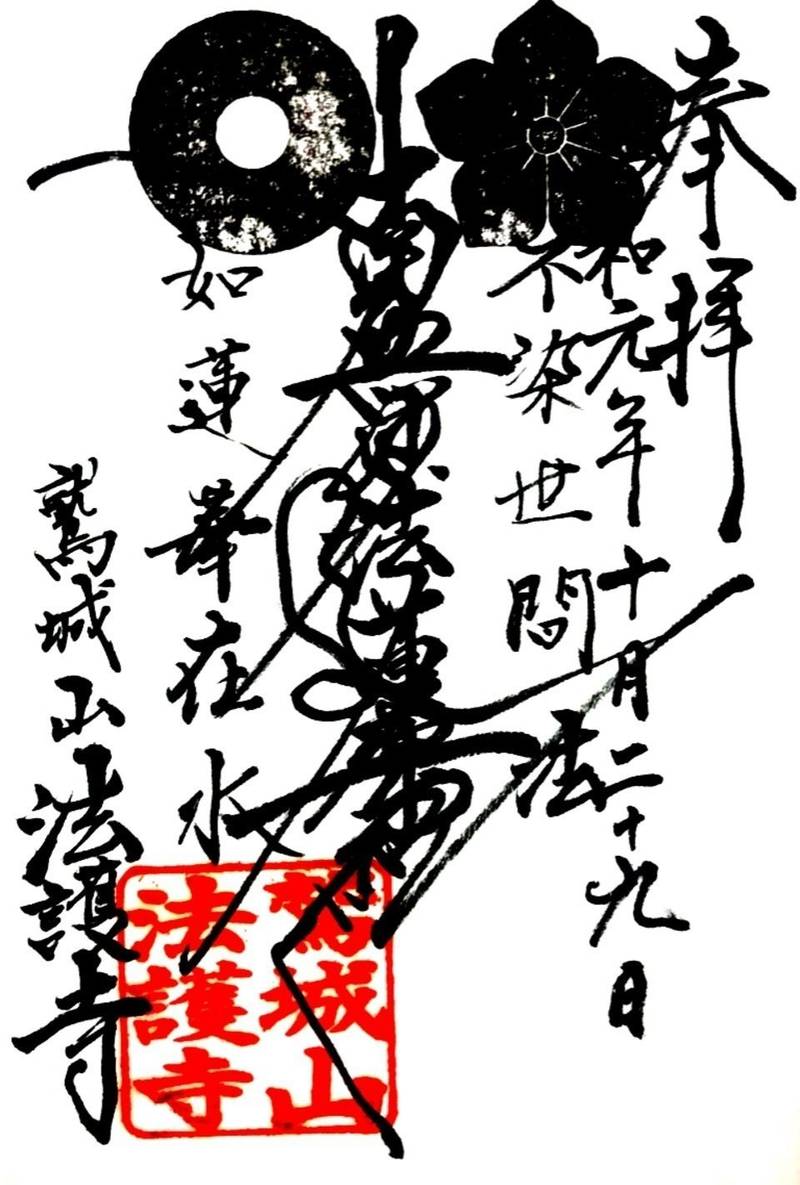 奉拝
和元年十月二十九日
不染世間法
南無妙法蓮華経
如蓮華在水
鷲城山法護寺
鷲城山
法護寺